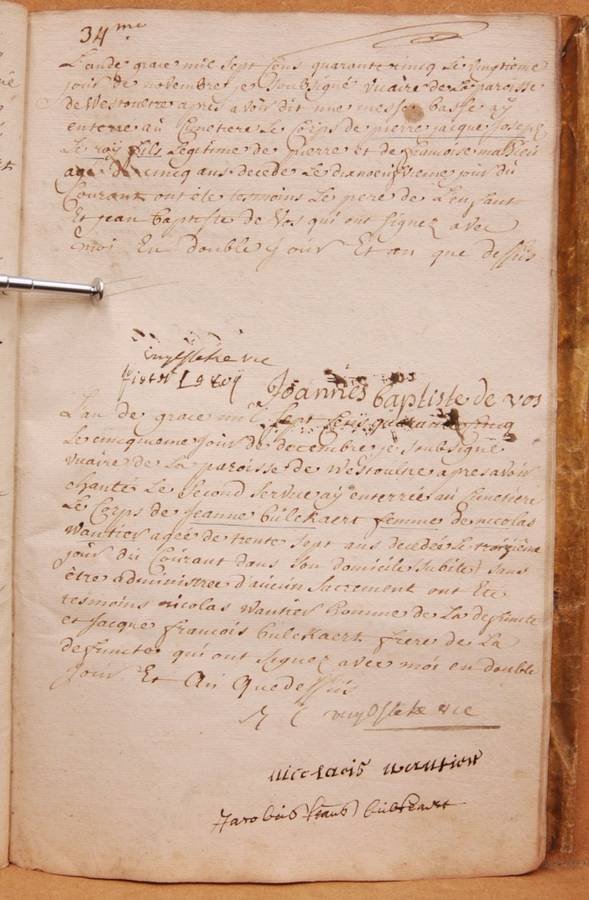 34me
L'an de grace mil sept cens quarante cinq le vingtieme
jour de novembre je soubsigné vicaire de la paroisse
de Westoultre apres avoir dit une messe basse ay
enterré au Cimetiere le Corps de pierre jacque joseph
Le roÿ fils Legitime de pierre et de francoise
agé de cinq ans decedé le dixneuvieme jour du
Courant ont été tesmoins le pere de l'enfant
Et jean baptiste de Vos qui ont signez avec
moi En double jour Et an que dessus
vic
Pieter Le roÿ Joannes baptiste de vos
L'an de grace mil sept cens quarante cinq
Le cinquieme jour de decembre je soubsigné
vicaire de La paroisse de Westoultre apres avoir
chanté Le Second service ay enterrée au Cimetiere
Le Corps de jeanne bulckaert femme de nicolas
Wautier agée de trente sept ans decedée Le troisieme
jour du Courant dans son domicile subitement sans
être administrée d'aucun Sacrement ont Eté
tesmoins nicolas Wautier homme de La defuncte
et jacque francois bulckaert frere de La
defuncte qui ont signez avec moi en double
jour Et An Que dessus
vic
nicolais wautier
Jacobus frans bulckaert